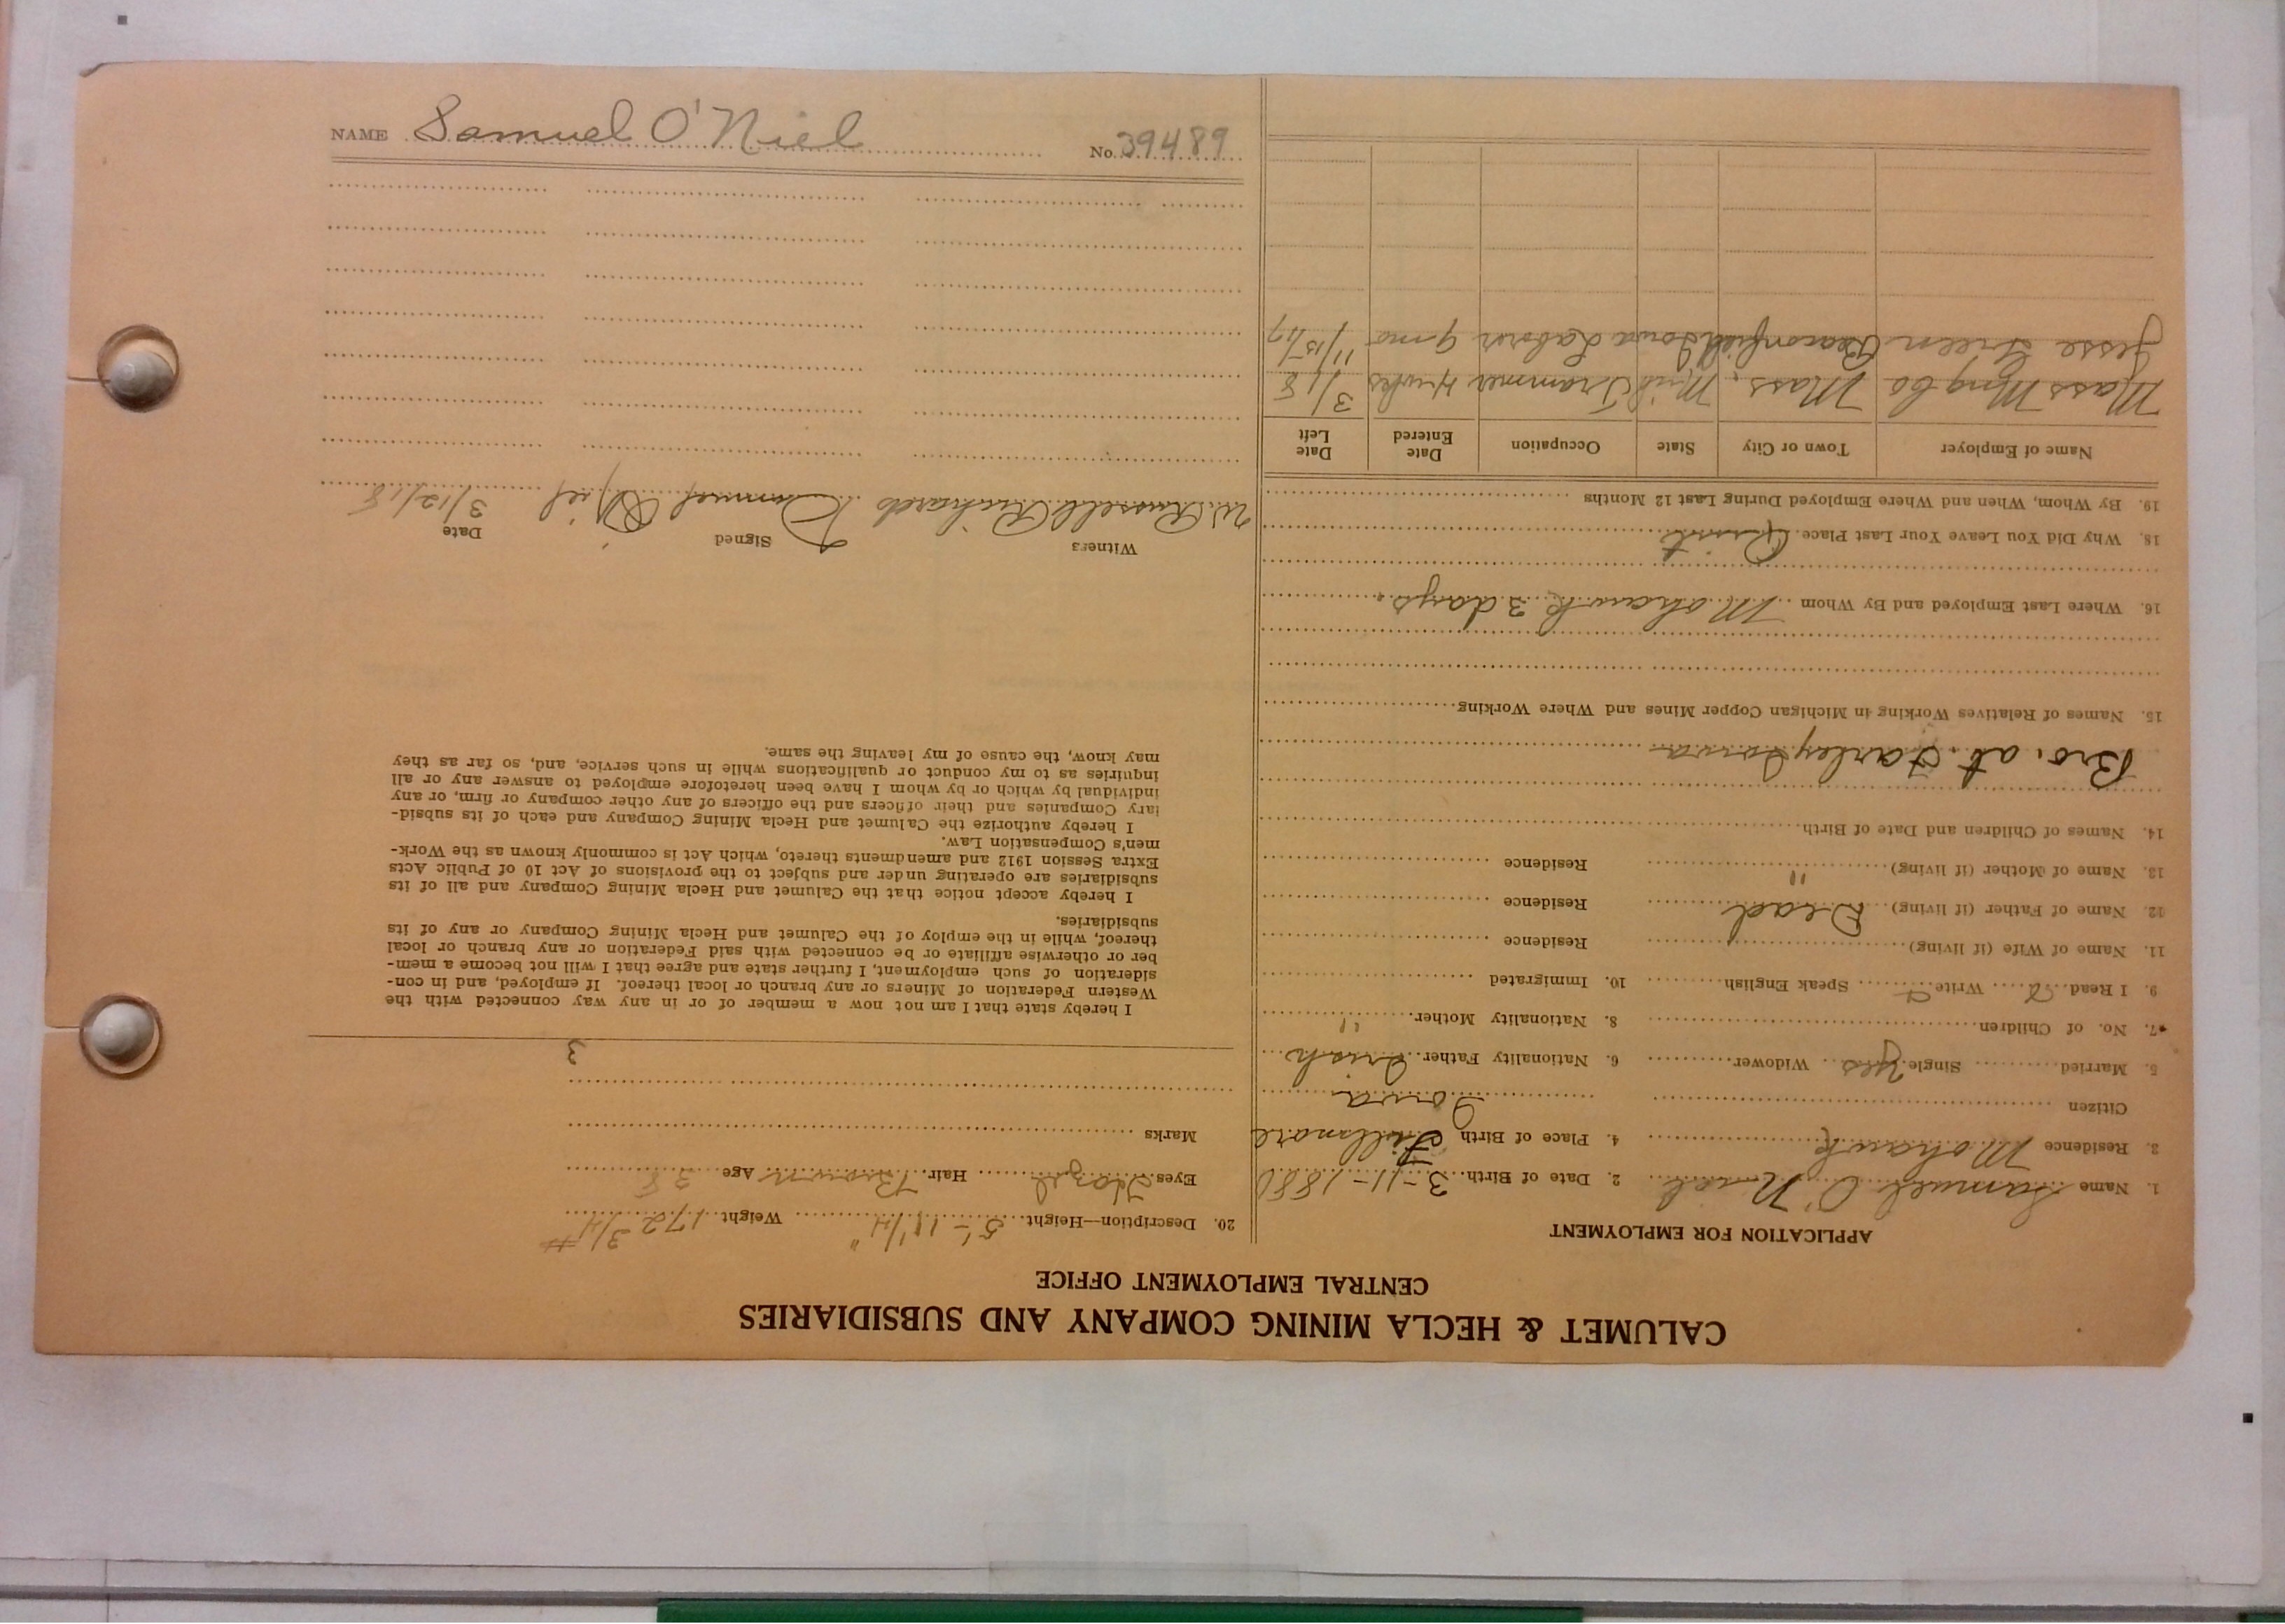 NAME Samuel O'Niel No. 39489
CALUMET & HECLA MINING COMPANY AND SUBSIDIARIES
CENTRAL EMPLOYMENT OFFICE
APPLICATION FOR EMPLOYMENT
1. Name Samuel O'Niel 2. Date of Birth 3-11-1880
3. Residence Mohawk 4. Place of Birth Fillmore
Citizen Iowa
5. Married Single Yes Widower 6. Nationality Father Irish
7. No. of Children 8. Nationality Mother "
9. I Read Write Speak English 10. Immigrated
11. Name of Wife (if living) Residence
12. Name of Father (if living) Dead Residence
13. Name of Mother (if living) " Residence
14. Names of Children and Date of Birth
Bro. at Farley Iowa
15. Names of Relatives Working in Michigan Copper Mines and Where Working
16. Where Last Employed and By Whom Mohawk 3 days.
18. Why Did You Leave Your Last Place. Quit
19. By Whom, When and Where Employed During Last 12 Months
Name of Employer Town or City State Occupation Date Entered Date Left
Mass Mng Co Mass. Mich Trammer 4 wks 3/1/8
Jesse Green Beaconfield Iowa Laborer 9 mo 11/15/17
20. Description—Height 5'-11 1/4" Weight 172 3/4 #
Eyes Hazel Hair Brown Age 38
Marks
3
I hereby state that I am not now a member of or in any way connected with the
Western Federation of Miners or any branch or local thereof. If employed, and in con-
sideration of such employment, I further state and agree that I will not become a mem-
ber or otherwise affiliate or be connected with said Federation or any branch or local
thereof, while in the employ of the Calumet and Hecla Mining Company or any of its
subsidiaries.
I hereby accept notice that the Calumet and Hecla Mining Company and all of its
subsidiaries are operating under and subject to the provisions of Act 10 of Public Acts
Extra Session 1912 and amendments thereto, which Act is commonly known as the Work-
men's Compensation Law.
I hereby authorize the Calumet and Hecla Mining Company and each of its subsid-
iary Companies and their officers and the officers of any other company or firm, or any
individual by which or by whom I have been heretofore employed to answer any or all
inquiries as to my conduct or qualifications while in such service, and, so far as they
may know, the cause of my leaving the same.
Witness Signed Date
W. Russell Richards Samuel O'Niel 3/12/18